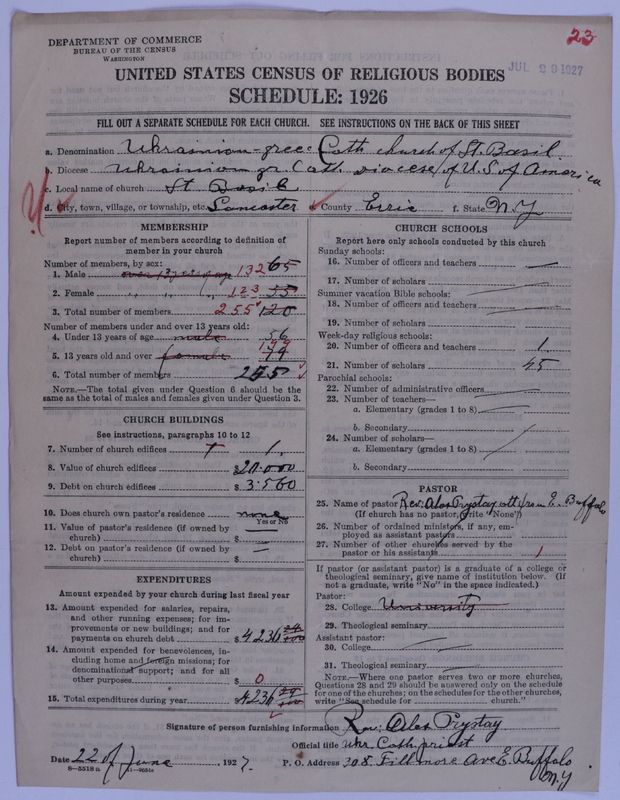 23
DEPARTMENT OF COMMERCE
BUREAU OF THE CENSUS
WASHINGTON
JUL 29 1927
UNITED STATES CENSUS OF RELIGIOUS BODIES
SCHEDULE: 1926
FILL OUT A SEPARATE SCHEDULE FOR EACH CHURCH. SEE INSTRUCTIONS ON THE BACK OF THIS SHEET
a. Denomination Ukrainian-greec Cath church of St. Basil.
b. Diocese Ukrainian gr. Cath. diocese of U.S. of America
c. Local name of church St. Basil
d. City, town, village, or township, etc. Lancaster e. County Errie f. State N.Y
MEMBERSHIP
Report number of members according to definition of
member in your church
Number of members, by sex:
1. Male over 13 years 132 65
2. Female " " " 123 55
3. Total number of members 255 120
Number of members under and over 13 years old:
4. Under 13 years of age male 56
5. 13 years old and over female 199
6. Total number of members 255
NOTE.—The total given under Question 6 should be the
same as the total of males and females given under Question 3.
CHURCH BUILDINGS
See instructions, paragraphs 10 to 12
7. Number of church edifices 1 1.
8. Value of church edifices $20.000
9. Debt on church edifices $3.560
10. Does church own pastor's residence none
Yes or No
11. Value of pastor's residence (if owned by
church) $ —
12. Debt on pastor's residence (if owned by
church) $ —
EXPENDITURES
Amount expended by your church during last fiscal year
13. Amount expended for salaries, repairs,
and other running expenses; for im-
provements or new buildings; and for
payments on church debt $4236 24/100
14. Amount expended for benevolences, in-
cluding home and foreign missions; for
denominational support; and for all
other purposes $ 0
15. Total expenditures during year $4236 24/100
CHURCH SCHOOLS
Report here only schools conducted by this church
Sunday schools:
16. Number of officers and teachers —
17. Number of scholars —
Summer vacation Bible schools:
18. Number of officers and teachers —
19. Number of scholars
Week-day religious schools:
20. Number of officers and teachers 1.
21. Number of scholars 45
Parochial schools:
22. Number of administrative officers —
23. Number of teachers—
a. Elementary (grades 1 to 8) —
b. Secondary
24. Number of scholars—
a. Elementary (grades 1 to 8)
b. Secondary
PASTOR
25. Name of pastor Rev. Alex Prystay att from E. Buffalo
(If church has no pastor, write "None")
26. Number of ordained ministers, if any, em-
ployed as assistant pastors
27. Number of other churches served by the
pastor or his assistants 1
If pastor (or assistant pastor) is a graduate of a college or
theological seminary, give name of institution below. (If
not a graduate, write "No" in the space indicated.)
Pastor:
28. College University
29. Theological seminary
Assistant pastor:
30. College —
31. Theological seminary —
NOTE.—Where one pastor serves two or more churches,
Questions 28 and 29 should be answered only on the schedule
for one of the churches; on the schedules for the other churches,
write "See schedule for church."
Signature of person furnishing information Rev. Alex Prystay
Official title Ukr. Cath. priest
Date 22 of June, 1927. P. O. Address 308. Fillmore Ave E. Buffalo
N.Y
8—5518 a